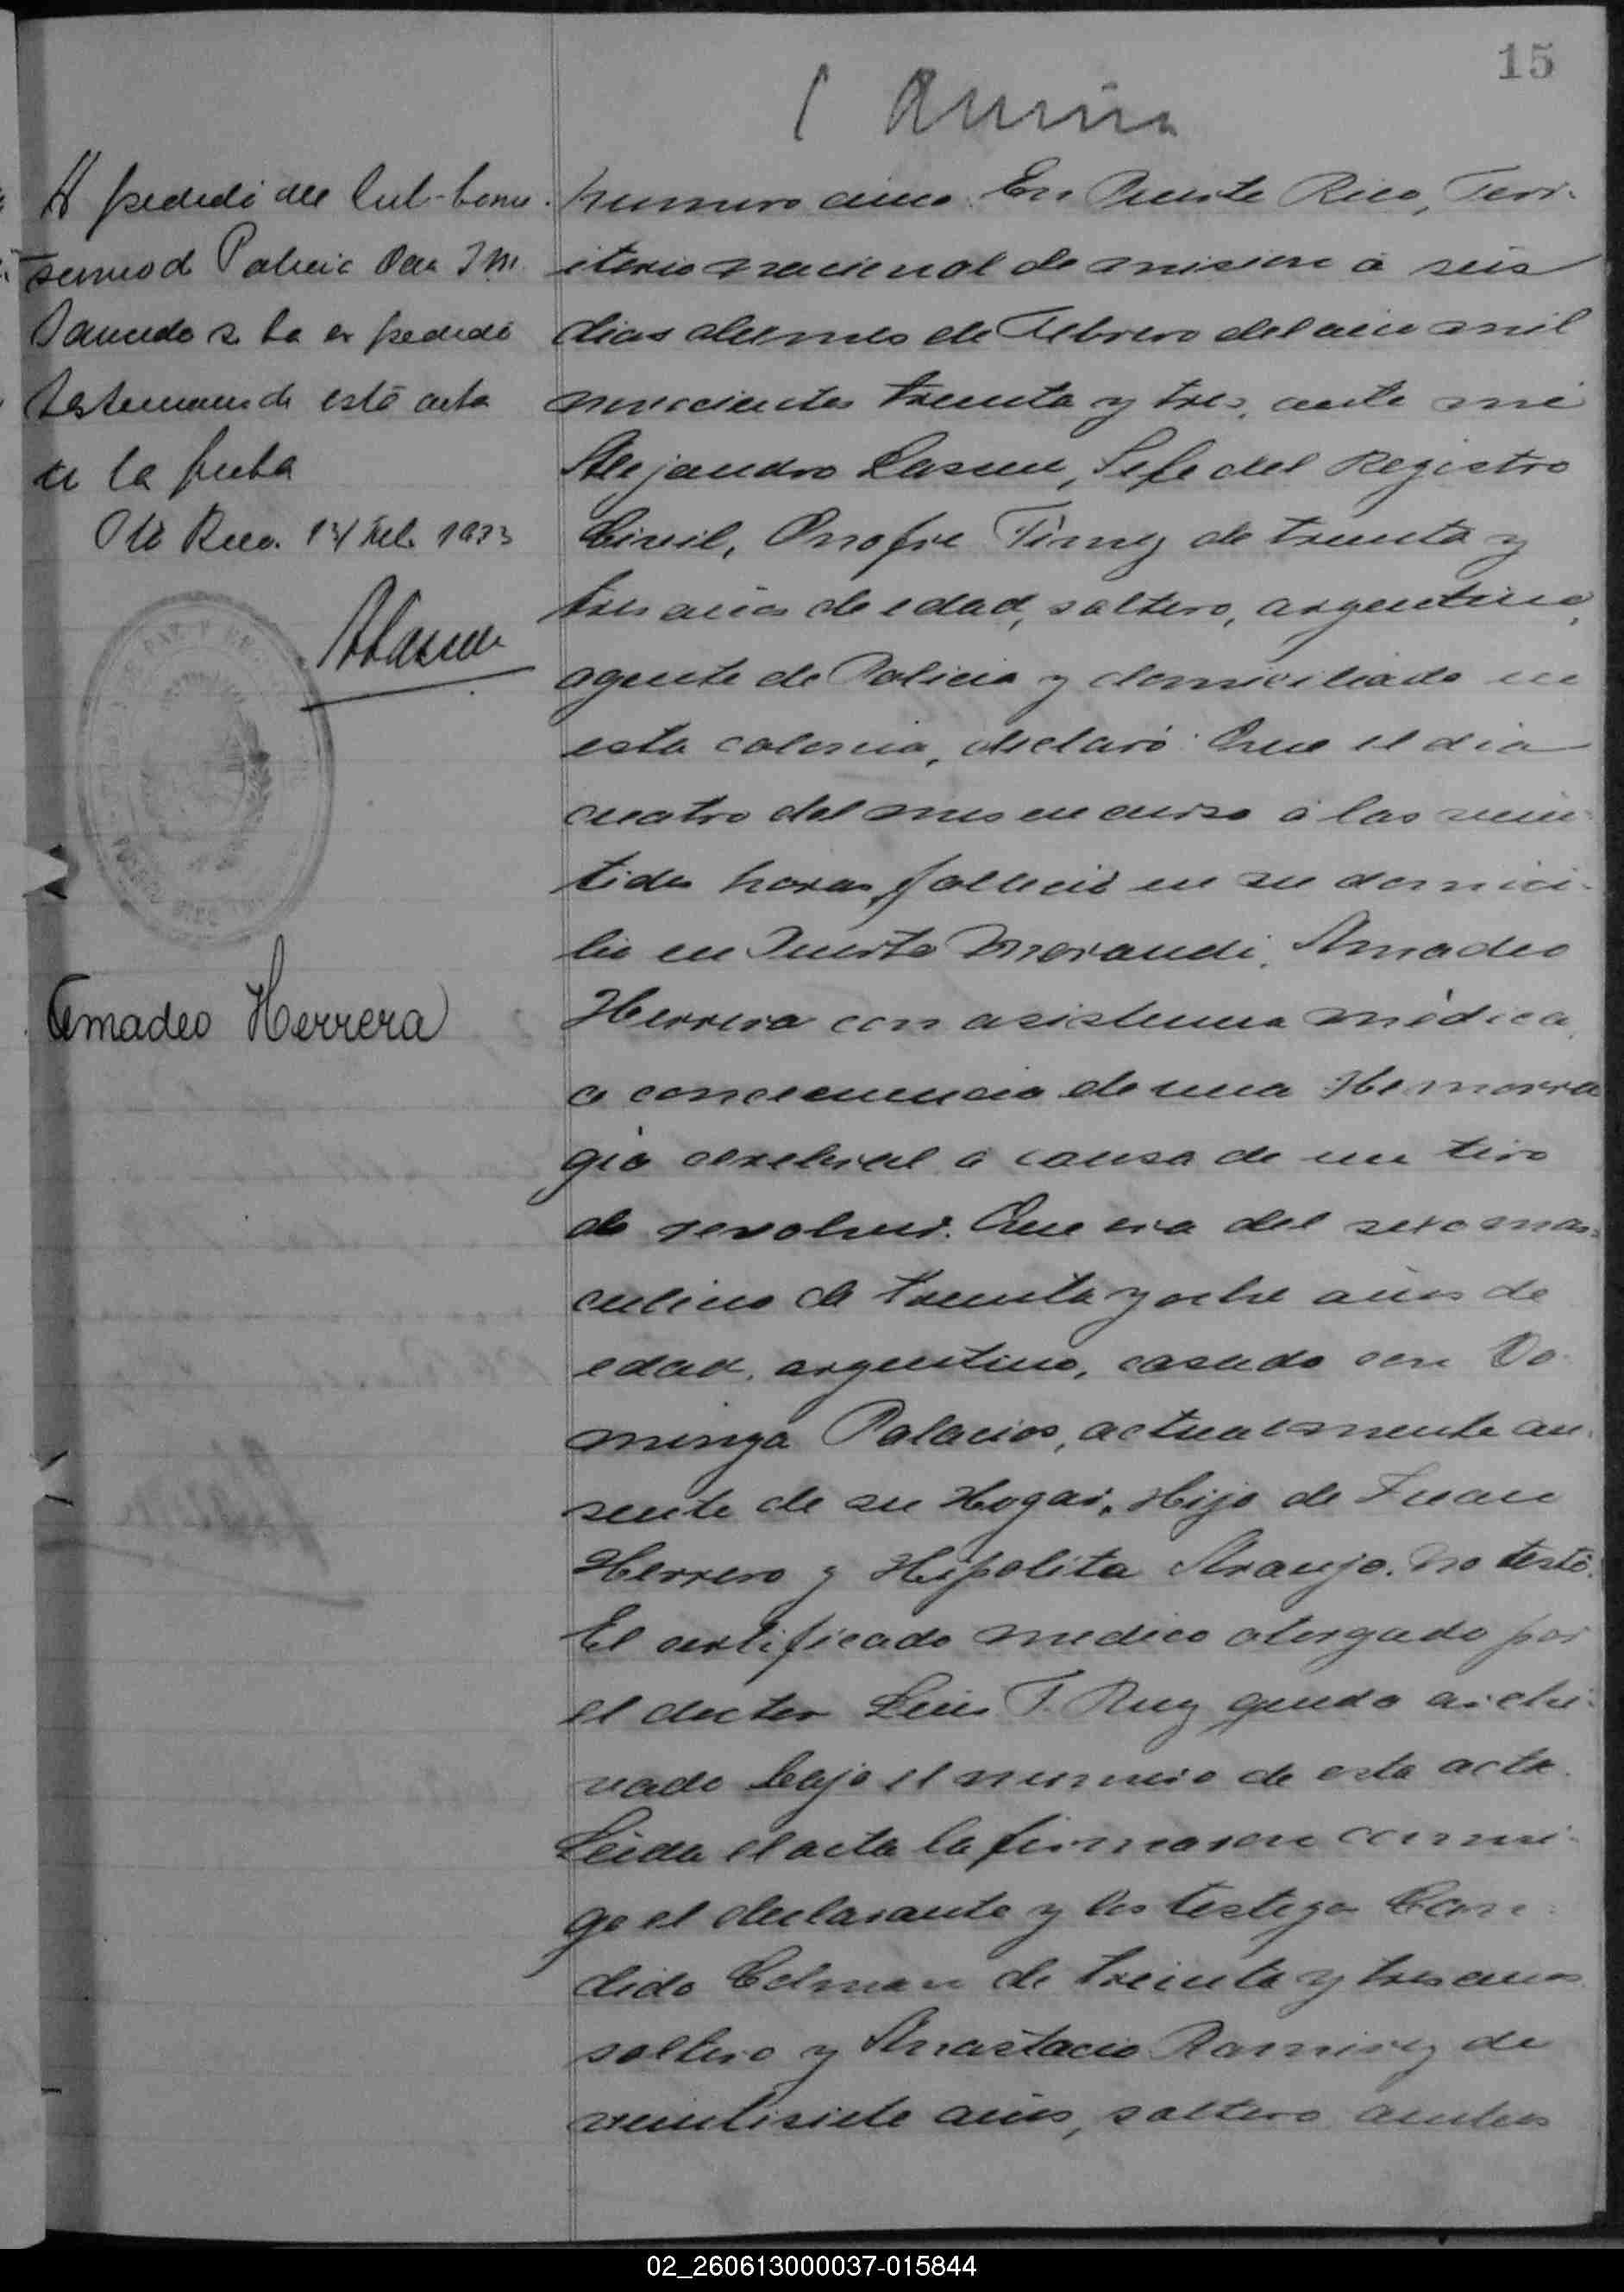 15
A pedido del Sub-Comi-
sario de Policia Don J M.
Saucedo se ha expedido
testimonio de esta acta
en la fecha
Pto Rico. 14 Feb. 1933
Amadeo Herrera
Numero cinco. En Puerto Rico, Terri-
itorio nacional de misiones a seis
dias del mes de Febrero del año mil
novecientos treinta y tres, ante mi
Alejandro Lasum, Jefe del Registro
Civil, Onofre de treinta y
tres años de edad, soltero, argentino,
agente de Policia y domiciliado en
esta colonia, declaró: Que el dia
cuatro del mes en curso á las vein-
tidos horas, falleció en su domici-
lio en Puerto Morandi, Amadeo
Herrera con asistencia médica,
a consecuencia de una Hemorra
gia cerebral a causa de un tiro
de revolver. Que era del sexo mas-
culino de treinta y ocho años de
edad, argentino, casado con Do-
minga Palacios, actualmente au-
sente de su Hogar. Hijo de Juan
Herrero y Hipolita Araujo. No testó.
El certificado medico otorgado por
el doctor Luis T. Ruiz queda archi-
vado bajo el numero de esta acta.
Leida el acta la firmaron conmi-
go el declarante y los testigos Can-
dido Colman de treinta y tres anos
soltero y Anastacio Ramirez de
veintisiete años, soltero ambos
02_260613000037-015844